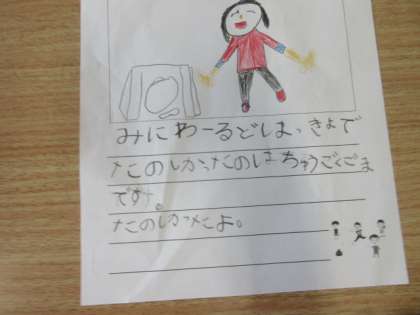 みにわーるどしょっきょで
たのしかったのはちゅうごくごま
です。
たのしかったよ。